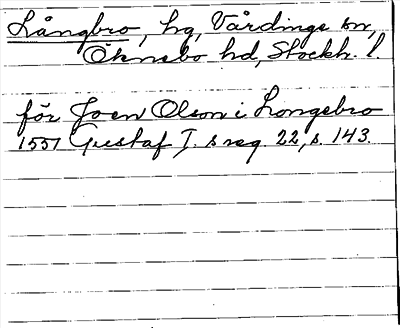 Långbro, hg, Vårdinge sn,
Öknebo hd, Stockh. l.
för Joen Olson i Longebro
1551 Gustaf I. s reg. 22, s. 143.